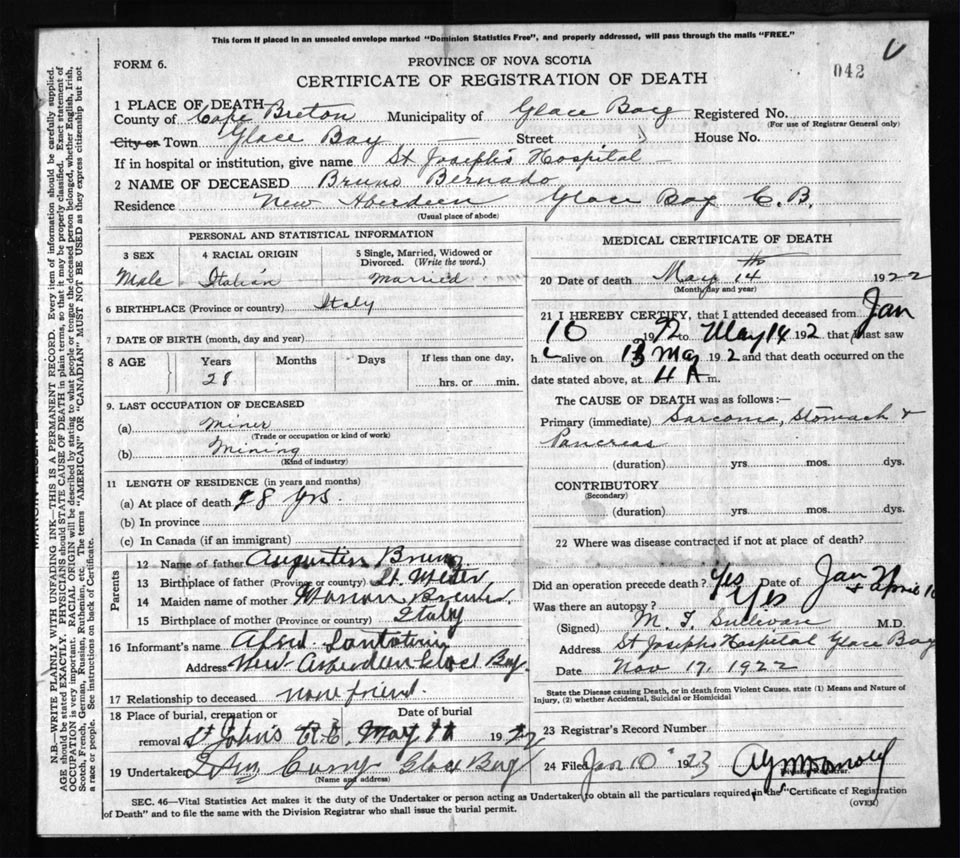 This form if placed in an unsealed envelope marked "Dominion Statistics Free", and properly addressed, will pass through the mails "FREE."
FORM 6.
PROVINCE OF NOVA SCOTIA
042
CERTIFICATE OF REGISTRATION OF DEATH
1 PLACE OF DEATH
County of Cape Breton Municipality of Glace Bay Registered No.
(For use of Registrar General only)
City or Town Glace Bay Street House No.
If in hospital or institution, give name St Joseph's Hospital
2 NAME OF DECEASED Bruno Bernado
Residence New Aberdeen Glace Bay C. B.
(Usual place of abode)
PERSONAL AND STATISTICAL INFORMATION
3 SEX 4 RACIAL ORIGIN 5 Single, Married, Widowed or Divorced. (Write the word.)
Male Italian Married
6 BIRTHPLACE (Province or country) Italy
7 DATE OF BIRTH (month, day and year)
8 AGE Years Months Days If less than one day,
28 hrs. or min.
9. LAST OCCUPATION OF DECEASED
(a) Miner
(Trade or occupation or kind of work)
(b) Mining
(Kind of industry)
11 LENGTH OF RESIDENCE (in years and months)
(a) At place of death 28 yrs.
(b) In province
(c) In Canada (if an immigrant)
Parents
12 Name of father Augustin Bruno
13 Birthplace of father (Province or country)
14 Maiden name of mother
15 Birthplace of mother (Province or country) Italy
16 Informant's name
Address New Aberdeen Glace Bay
17 Relationship to deceased none friend.
18 Place of burial, cremation or removal Date of burial
St John's May 192
19 Undertaker Glace Bay
(Name and address)
MEDICAL CERTIFICATE OF DEATH
20 Date of death May 14th 1922
(Month, day and year)
21 I HEREBY CERTIFY, that I attended deceased from Jan
10 192 to May 14 192 that I last saw
h alive on 13 May 192 and that death occurred on the
date stated above, at 4 A m.
The CAUSE OF DEATH was as follows:—
Primary (immediate) Sarcoma, Stomach &
Pancreas
(duration) yrs. mos. dys.
CONTRIBUTORY
(Secondary)
(duration) yrs. mos. dys.
22 Where was disease contracted if not at place of death?
Did an operation precede death? Yes Date of Jan
& April 10
Was there an autopsy? Yes
(Signed) M. T. Sullivan M.D.
Address St Josephs Hospital Glace Bay
Date Nov 17, 1922
State the Disease causing Death, or in death from Violent Causes, state (1) Means and Nature of Injury, (2) whether Accidental, Suicidal or Homicidal
23 Registrar's Record Number
24 Filed Jan 10 1923
SEC. 46—Vital Statistics Act makes it the duty of the Undertaker or person acting as Undertaker to obtain all the particulars required in the "Certificate of Registration
of Death" and to file the same with the Division Registrar who shall issue the burial permit.
(OVER)
N.B.—WRITE PLAINLY WITH UNFADING INK—THIS IS A PERMANENT RECORD. Every item of information should be carefully supplied.
AGE should be stated EXACTLY. PHYSICIANS should STATE CAUSE OF DEATH in plain terms, so that it may be properly classified. Exact statement of
OCCUPATION is very important. RACIAL ORIGIN will be described by stating to what people or tongue the deceased person belonged, whether English, Irish,
Scotch, French, German, Russian, Ruthenian, etc. The terms "AMERICAN" or "CANADIAN" MUST NOT BE USED as they express citizenship but not
a race or people. See instructions on back of Certificate.